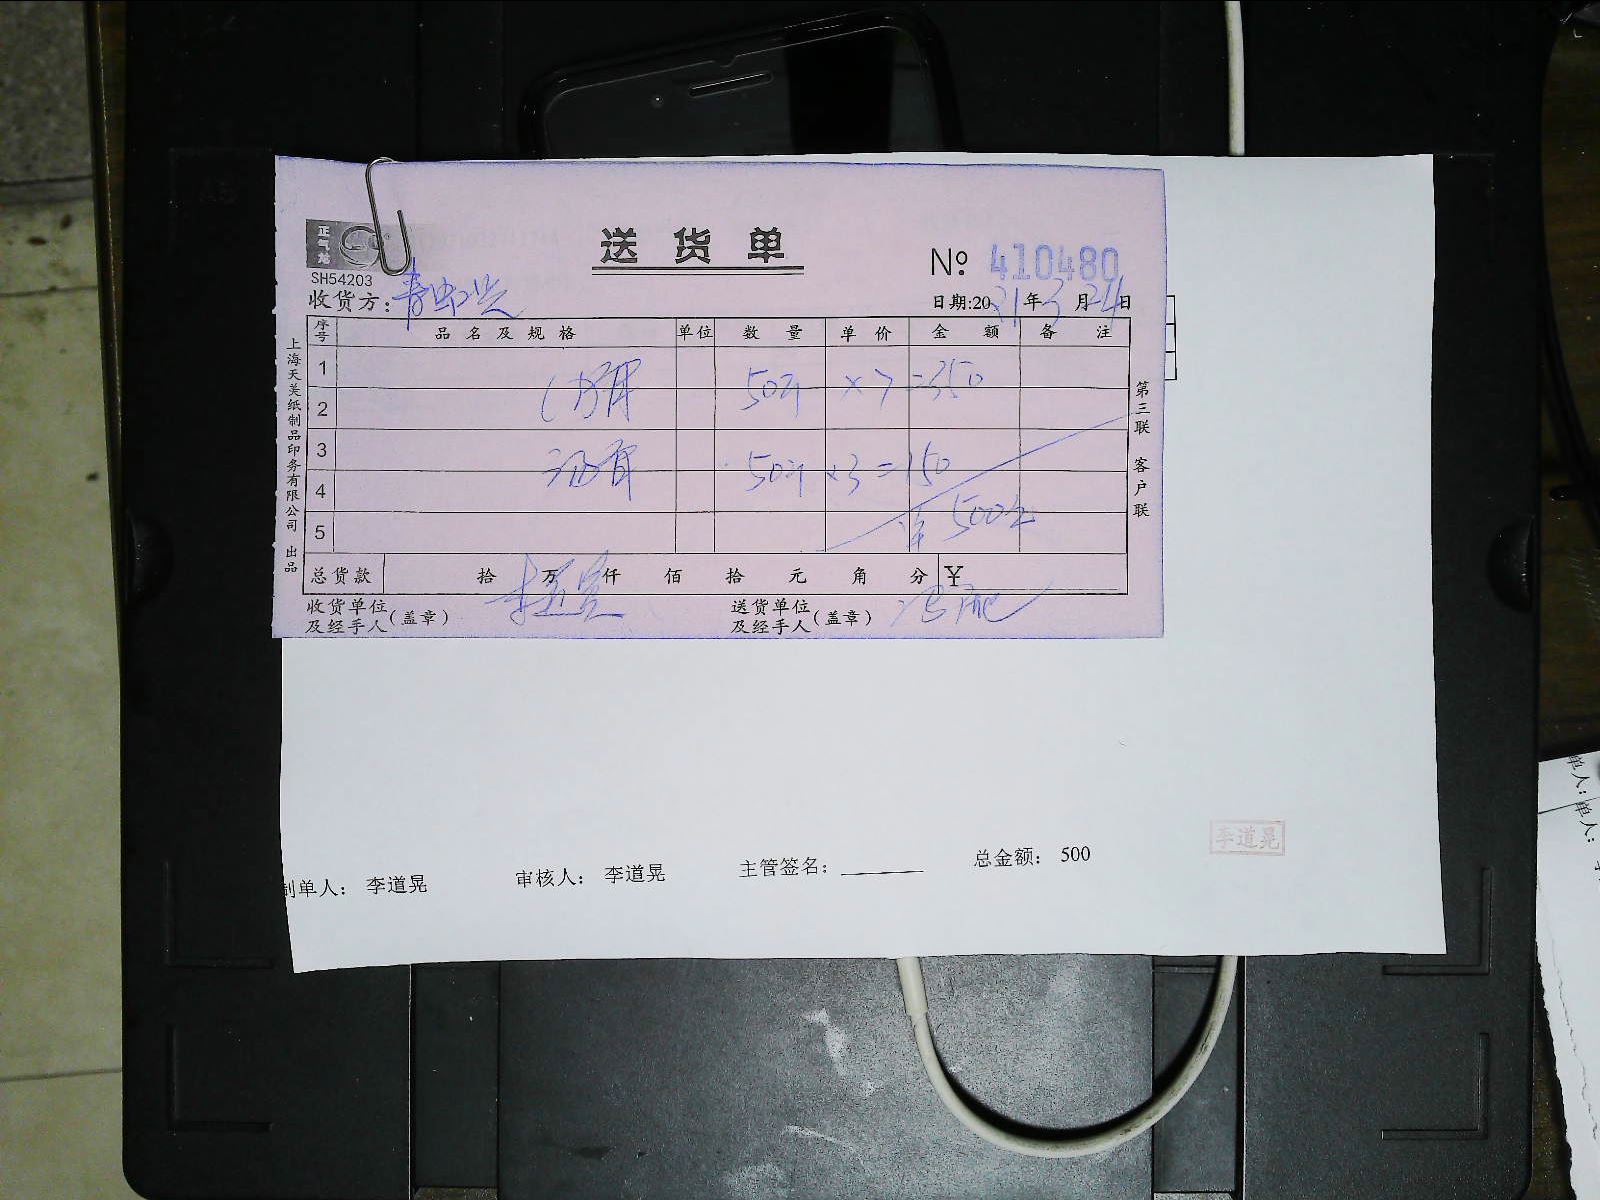 正气站
送货单
SH54203
No 410480
收货方:
日期:2021年3月24日
序号 品名及规格 单位 数量 单价 金额 备注
1 50斤 ×7 =350
2
3 50斤 ×3 =150
4
5 500元
总货款 拾 万 仟 佰 拾 元 角 分 ¥
收货单位及经手人(盖章) 李道晃
送货单位及经手人(盖章)
上海天美纸制品印务有限公司 出品
第三联 客户联
制单人: 李道晃 审核人: 李道晃 主管签名: 总金额: 500
李道晃
单人:
单人: